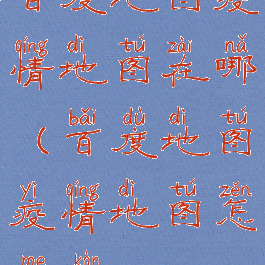 百度地图疫
qíng dì tú zài nǎ
情地图在哪
bǎi dù dì tú
（百度地图
yì qíng dì tú zěn
疫情地图怎
me kàn